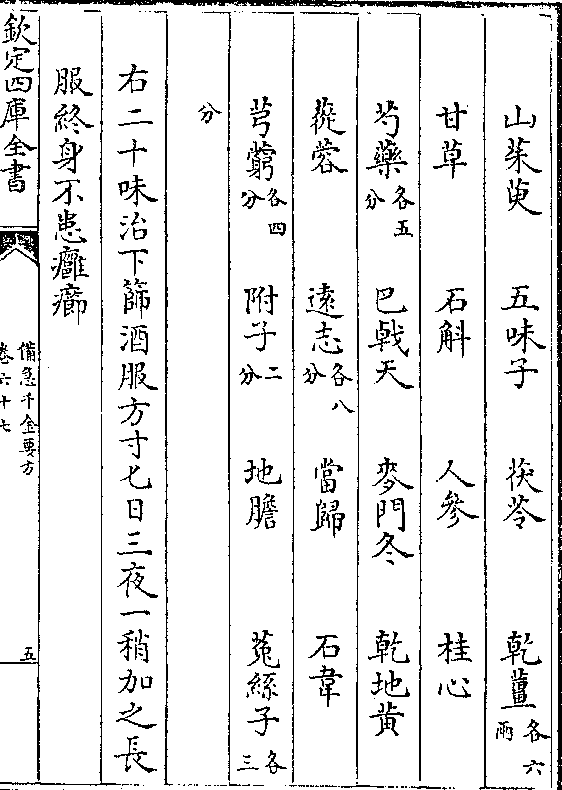 山茱萸　五味子　茯苓　乾薑各六兩
甘草　石斛　人參　桂心
芍藥各五分　巴戟天　麥門冬　乾地黄
蓯蓉　遠志各八分　當歸　石韋
芎藭各四分　附子二分　地膽　菟絲子各三
分
右二十味治下篩酒服方寸匕日三夜一稍加之長
服終身不患癰癤
欽定四庫全書
備急千金要方
卷六十七
五